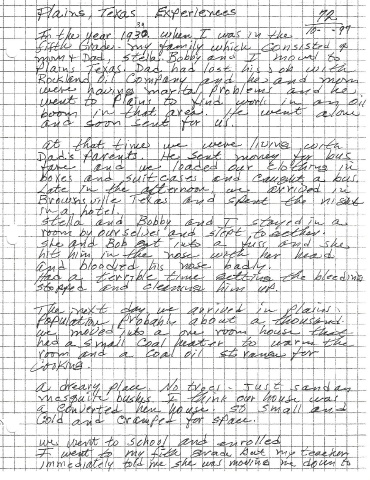 Plains, Texas Experiences
72
10- -97
In the year 1939 when I was in the
fifth Grade - my family which consisted of
mom & Dad, Stella, Bobby and I moved to
Plains Texas. Dad had lost his job with
Rockland Oil Company and he and mom
were having marital problems and he
went to Plains to find work in an oil
boom in that area. He went alone
and soon sent for us.
at that time we were living with
Dad's parents. He sent money for bus
fare and we loaded our clothing in
boxes and suit cases and caught a bus
late in the afternoon, we arrived in
Brownsville Texas and spent the night
in a hotel.
Stella and Bobby and I stayed in a
room by ourselves and slept together.
She and Bob got into a fuss and she
hit him in the nose with her head
and bloodied his nose badly.
had a terrible time getting the bleeding
stopped and cleaning him up.
The next day we arrived in Plains.
Population Probably about a thousand
we moved into a one room house there
had a small Coal heater to warm the
room and a Coal oil stove for
Cooking
a dreary place. No trees - Just sand an
mesquite bushs I think our house was
a converted hen house. so small and
Cold and cramped for space.
we went to school and enrolled
I went to my fifth grade but my teacher
immediately told me she was moving me down to